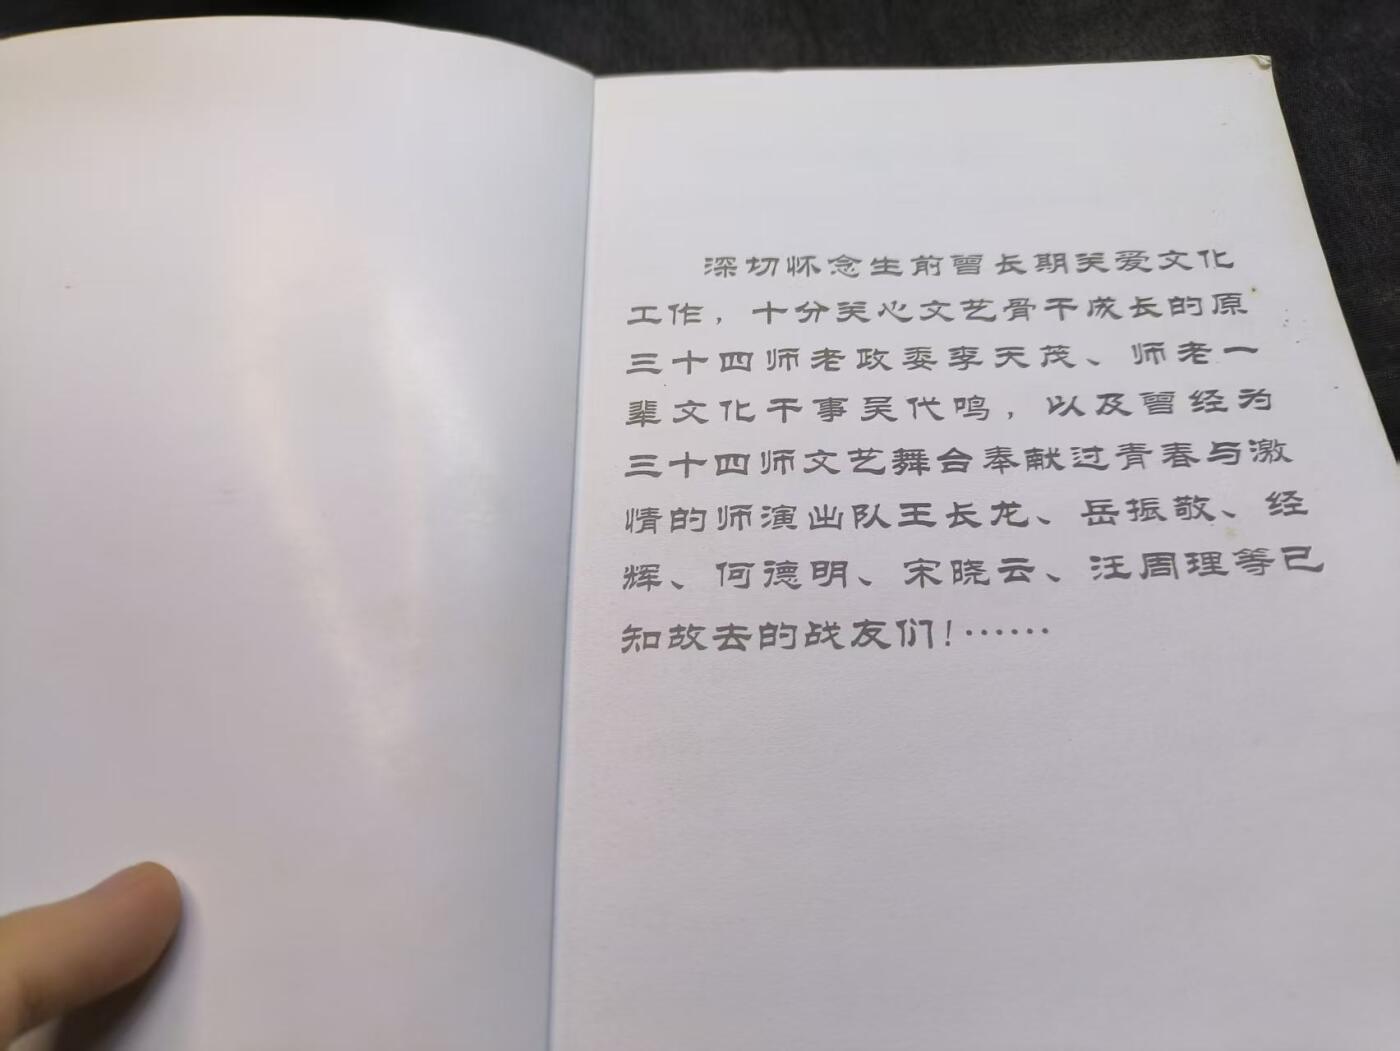 深切怀念生前曾长期关爱文化
工作，十分关心文艺骨干成长的原
三十四师老政委李天茂、师老一
辈文化干事吴代鸣，以及曾经为
三十四师文艺舞台奉献过青春与激
情的师演出队王长龙、岳振敬、经
辉、何德明、宋晓云、汪周理等已
知故去的战友们！……